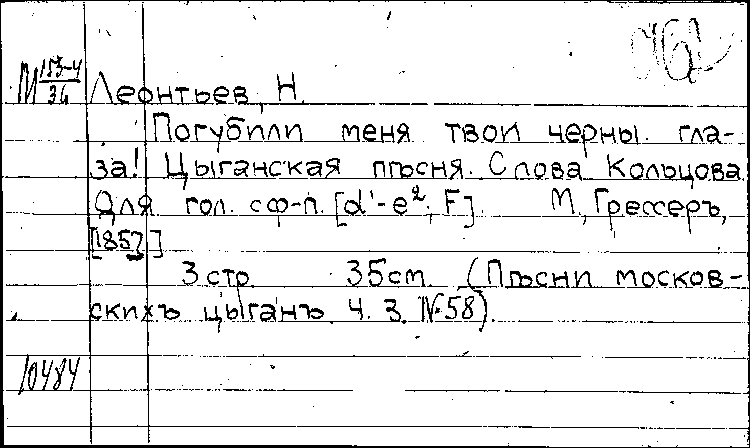 М 153-4
36
Леонтьев, Н.
Погубили меня твои черны гла-
за! Цыганская пѣсня. Слова Кольцова
Для гол. с ф-п. [d¹-e², F]. М., Грессеръ,
[1857]
3 стр. 35 см. (Пѣсни москов-
скихъ цыганъ. Ч. 3. № 58).
10484